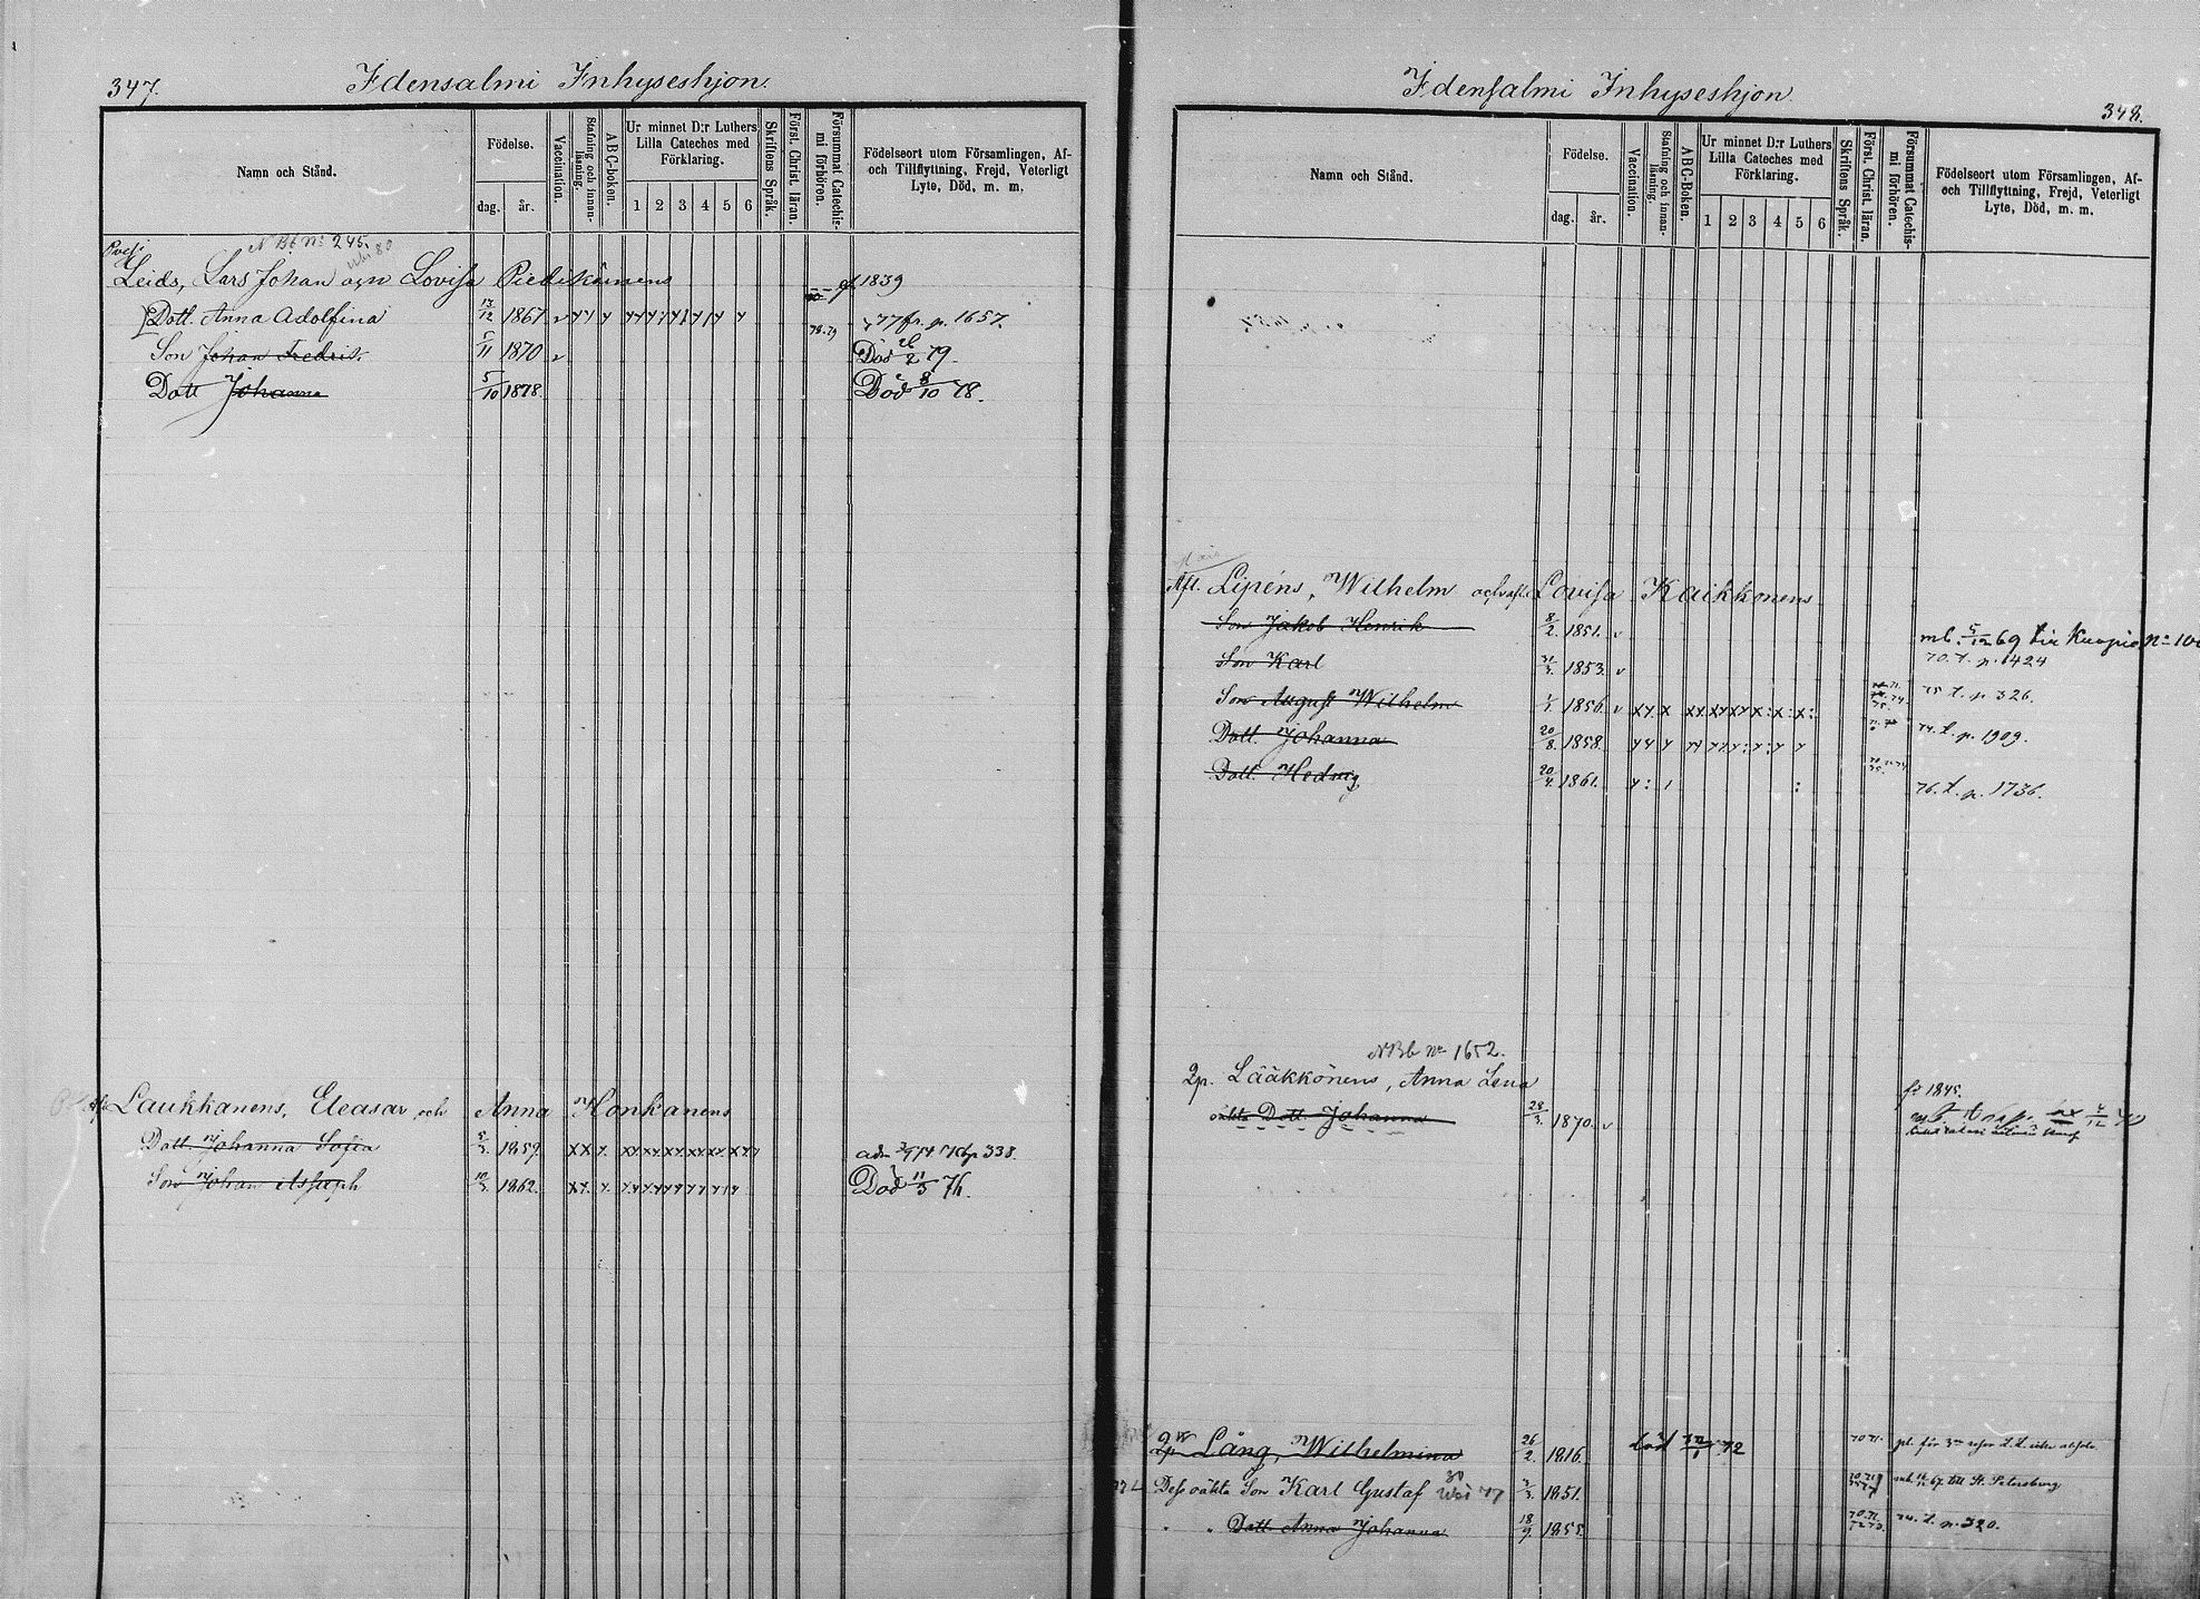 347.
Idensalmi Inhyseshjon.
Namn och Stånd.
Födelse.
dag.
år.
Vaccination.
Stafning och innan-
läsning.
ABC-boken.
Ur minnet D:r Luthers
Lilla Cateches med
Förklaring.
1 2 3 4 5 6
Skriftens Språk.
Först. Christ. läran.
Försummat Catechis-
mi förhören.
Födelseort utom Församlingen, Af-
och Tillflyttning, Frejd, Veterligt
Lyte, Död, m. m.
N Bb No 245.
Leids, Lars Johan o Lovisa Piedikäinens 1839
Dott. Anna Adolfina 13/12 1867 v 78.79 77 fr. p. 1657.
Son Johan Fredrik 5/11 1870 v Död 26/2 79.
Dott Johanna 5/10 1878. Död 8/10 78.
Laukkanens, Eleasar och Anna Honkanens
Dott Johanna Sofia 5/3 1859. 338.
Son Johan 10/3. 1862. Död 11/3 76.
Idensalmi Inhyseshjon
348.
Namn och Stånd.
Födelse.
dag.
år.
Vaccination.
Stafning och innan-
läsning.
ABC-Boken.
Ur minnet D:r Luthers
Lilla Cateches med
Förklaring.
1 2 3 4 5 6
Skriftens Språk.
Först. Christ. läran.
Försummat Catechis-
mi förhören.
Födelseort utom Församlingen, Af-
och Tillflyttning, Frejd, Veterligt
Lyte, Död, m. m.
Afl. Lipéns, Wilhelm och Lovisa Kaikkonens
Son Jakob Henrik 8/2. 1851. v mb. 5/12 69 Kuopio
Son Karl 1853. v 70. t. p. 1424
Son August Wilhelm 1/1. 1856. v 75 t. p 326.
Dott. Johanna 20/8. 1858. 74. t. p. 1909.
Dott. Hedvig 20/4. 1861. 76. t. p. 1736.
NBb No 1652.
Qp. Lääkkönens, Anna Lena 1845.
oäkta Dott. Johanna 28/3. 1870. v
Qp Lång, Wilhelmina 26/2. 1816. död 1 72 70 71.
Dess oäkta Son Karl Gustaf 3/3. 1851. till St. Petersburg
" " Dott Anna Johanna 18/9. 1855. 74. t. p. 320.